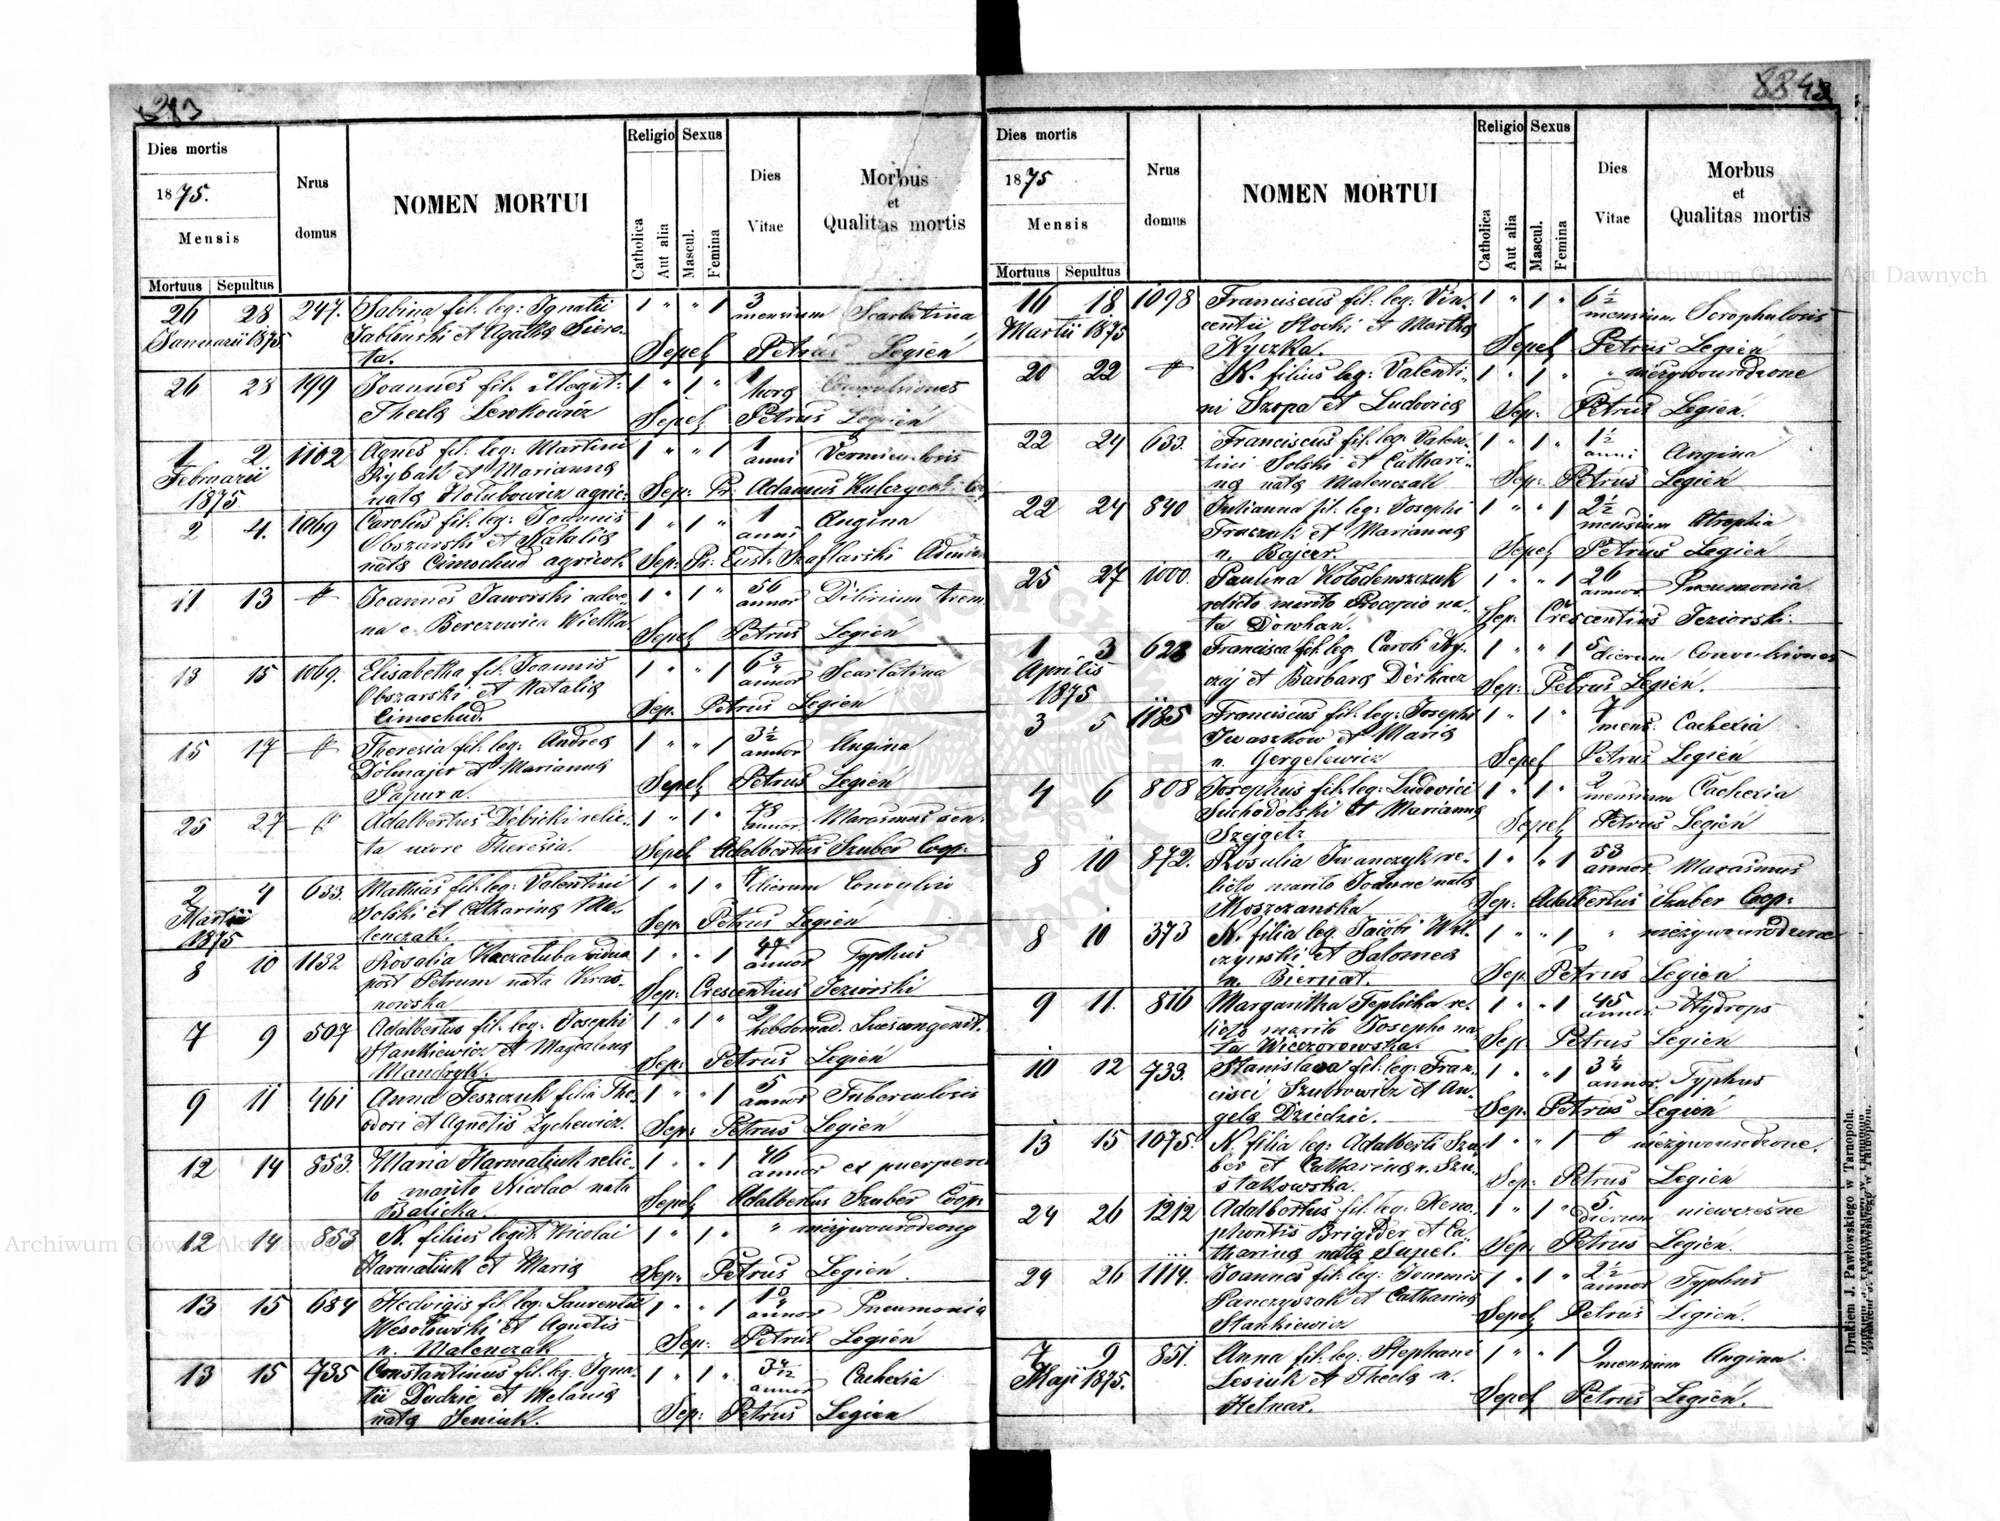 Dies mortis
1875.
Mensis
Mortuus Sepultus
Nrus domus
NOMEN MORTUI
Religio
Catholica
Aut alia
Sexus
Mascul.
Femina
Dies Vitae
Morbus et Qualitas mortis
26 28 247. Sabina fil. leg: Ignatii 1 " " 1 3
Januarii 1875 et Agatha mensium Scarlatina
ta. Sepel Petrus Legień
26 28 199 Joannes fil. illegit: 1 " 1 " 1
Thecla Lewkowicz hora Convulsiones
Sepel Petrus Legień
1 2 1102 Agnes fil. leg: Martini 1 " " 1 1
Februarii Rybak et Marianna anni
1875. nata Hołubowicz agric: Sep: Pr. Adamus
2 4. 1069 Carolus fil. leg: Joannis 1 " 1 " 1 Angina
Obszarski et Natalia anni
nata Cimochud agricol. Sep: Pr: Eust: Szaflarski
11 13 Joannes Jaworski adve: 1 " 1 " 56
na e Berezowica Wielka. annor Dilirium trem.
Sepel Petrus Legień
13 15 1069. Elisabetha fil. Joannis 1 " " 1
Obszarski et Natalia annor Scarlatina
Cimochud. Sep. Petrus Legień
15 17 Theresia fil. leg: Andrea 1 " " 1 3½
Dolmajer et Marianna annor Angina
Papura. Sepel Petrus Legień
25 27 Adalbertus Debicki relic: 1 " 1 " 78
ta uxore Theresia. annor. Marasmus sen.
Sepel Adalbertus Szuber Coop.
2 4 633. Mathias fil. leg: Valentini 1 " 1 " dierum Convulsio
Martii Solski et Catharina Ma:
1875 lenczak. Sep: Petrus Legień
8 10 1132 Rosalia vidua 1 " " 1
post Petrum nata Kras: annor Typhus
nowska Sep: Crescentius Jeziorski
7 9 507 Adalbertus fil. leg: Josephi 1 " 1 " 2
Stankiewicz et Magdalena hebdomad.
Mandryk. Sep: Petrus Legień
9 11 461 Anna Teszczuk filia The: 1 " " 1 5
odori et Agnetis Zychewicz. annor Tuberculosis
Sep: Petrus Legień
12 14 853. Maria Harmatiuk relic: 1 " " 1 46
to marito Nicolao nata annor ex puerperio
Balicka. Sepel Adalbertus Szuber Coop.
12 14 853 N. filius legit: Nicolai 1 " 1 " " nieżywourodzony
Harmatiuk et Maria
Sep: Petrus Legień.
13 15 684 Hedvigis fil. leg: Laurentii 1 " " 1
Wesołowski et Agnetis annor Pneumonia
n. Malenczak Sep: Petrus Legień
13 15 735 Constantinus fil. leg. Igna: 1 " 1 "
tii Dudzic et Melania annor Cachexia
nata Seniuk. Sep: Petrus Legien
8848
Dies mortis
1875
Mensis
Mortuus Sepultus
Nrus domus
NOMEN MORTUI
Religio
Catholica
Aut alia
Sexus
Mascul.
Femina
Dies Vitae
Morbus et Qualitas mortis
16 18 1098 Franciscus fil. leg: Vin: 1 " 1 " 6½
Martii 1875 centii et Martha mensium Scrophulosis
Nyczka. Sepel Petrus Legień
20 22 N. filius leg: Valenti: 1 " 1 " " nieżywourodzone
ni Szopa et Ludovica
Sep: Petrus Legień.
22 24 633. Franciscus fil. leg: Valen: 1 " 1 " 1½
tini Solski et Cathari: anni Angina
na nata Malenczak Sep: Petrus Legień
22 24 840 Julianna fil. leg: Josephi 1 " " 1 2½
et Marianna mensium Atrophia
n. Bajcar. Sepel Petrus Legień
25 27 1000. Paulina Kołodenszczuk 1 " " 1 26
relicto marito Procopio na: annor Pneumonia
ta Dowhan. Sep: Crescentius Jeziorski.
1 3 628 Francisca fil. leg. Caroli 1 " " 1 5
Aprilis et Barbara Derkacz dierum Convulsiones
1875 Sep: Petrus Legień.
3 5 1185 Franciscus fil. leg: Josephi 1 " 1 " 7
Iwaszków et Maria mens: Cachexia
n. Gergelewicz Sepel Petrus Legień
4 6 808 Josephus fil. leg: Ludovici 1 " 1 " 2
Suchodolski et Marianna mensium Cachexia
Sepel Petrus Legień
8 10 872. Rosalia Iwanczyk re: 1 " " 1 53
licto marito Joanne nata annor Marasmus
Moszczanska Sep: Adalbertus Szuber Coop:
8 10 373 N. filia leg. Jacobi Wil: 1 " " 1 " nieżywourodzona
czynski et Salomea
n. Biernat. Sep: Petrus Legień
9 11. 816 Margaritha Teplicka re: 1 " " 1 45
licto marito Josepho na: annor Hydrops
ta Wieczorowska. Sep: Petrus Legień
10 12 733. Stanislava fil. leg: Fran: 1 " " 1 3½
cisci Szubrowicz et An: annor. Typhus
gela Dziedzic. Sep: Petrus Legień
13 15 1075. N. filia leg: Adalberti Szu: 1 " " 1 nieżywourodzone.
ber et Catharina n. Szu:
stakowska. Sep: Petrus Legień
24 26 1212 Adalbertus fil. leg: Xeno: 1 " 1 " 5.
phontis Brigider et Ca: dierum niewcześne
tharina nata Supel. Sep: Petrus Legień.
24 26 1114. Joannes fil. leg: Joannis 1 " 1 " 2½
Panczyszak et Catharina annor Typhus
Stankiewicz Sepel Petrus Legień.
7 9 851. Anna fil. leg: Stephani 1 " " 1 9
Maji 1875. Lesiuk et Thecla n. mensium Angina
Hetnar. Sepel Petrus Legień.
Drukiem J. Pawłowskiego w Tarnopolu.
Archiwum Główne Akt Dawnych
Archiwum Główne Akt Dawnych